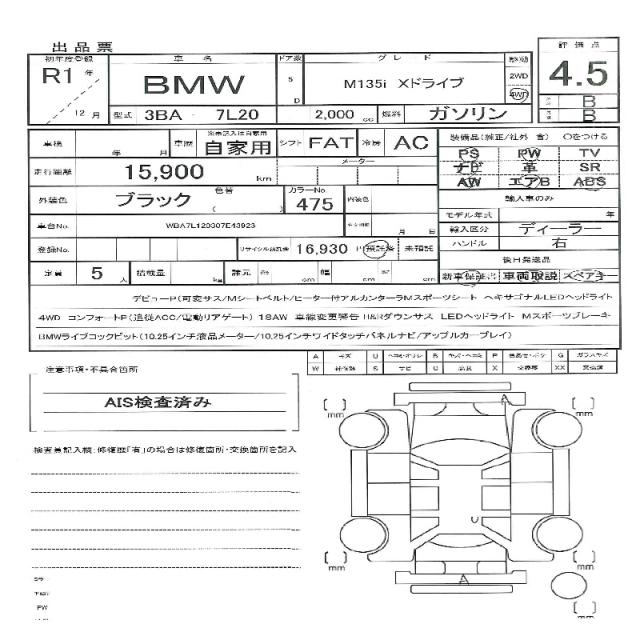 出品票
初年度登録 車名 ドア数 グレード 駆動 評価点
R1 年 BMW 5 D M135i Xドライブ 2WD 4WD 4.5
12 月 型式 3BA - 7L20 2,000 cc 燃料 ガソリン B B
車検 年 月 車歴 自家用 シフト FAT 冷房 AC 装備品(純正/社外 含) ○をつける
PS PW TV
走行距離 15,900 km メーター ナビ 革 SR
AW エアB ABS
外装色 ブラック 色替 ( ) カラーNo 475 内装色 輸入車のみ
モデル年式 年
車台No. WBA7L120307E43923 月 日 輸入区分 ディーラー
登録No. リサイクル預託金 16,930 円 預託済 未預託 ハンドル 右
後日発送品
定員 5 人 積載量 kg 諸元 長 cm 幅 cm 高 cm 新車保証書 車両取説 スペアキー
デビューP(可変サス/Mシートベルト/ヒーター付アルカンターラMスポーツシート ヘキサゴナルLEDヘッドライト
4WD コンフォートP(追従ACC/電動リアゲート) 18AW 車線変更警告 H&Rダウンサス LEDヘッドライト Mスポーツブレーキ
BMWライブコックピット(10.25インチ液晶メーター/10.25インチワイドタッチパネルナビ/アップルカープレイ)
A キズ U B P G ガラスキズ
注意事項・不具合箇所 W S サビ C X XX
AIS検査済み
検査員記入欄:修復歴「有」の場合は修復箇所・交換箇所を記入
A
[ ] mm [ ] mm
U
[ ] mm
A
[ ] mm
PW